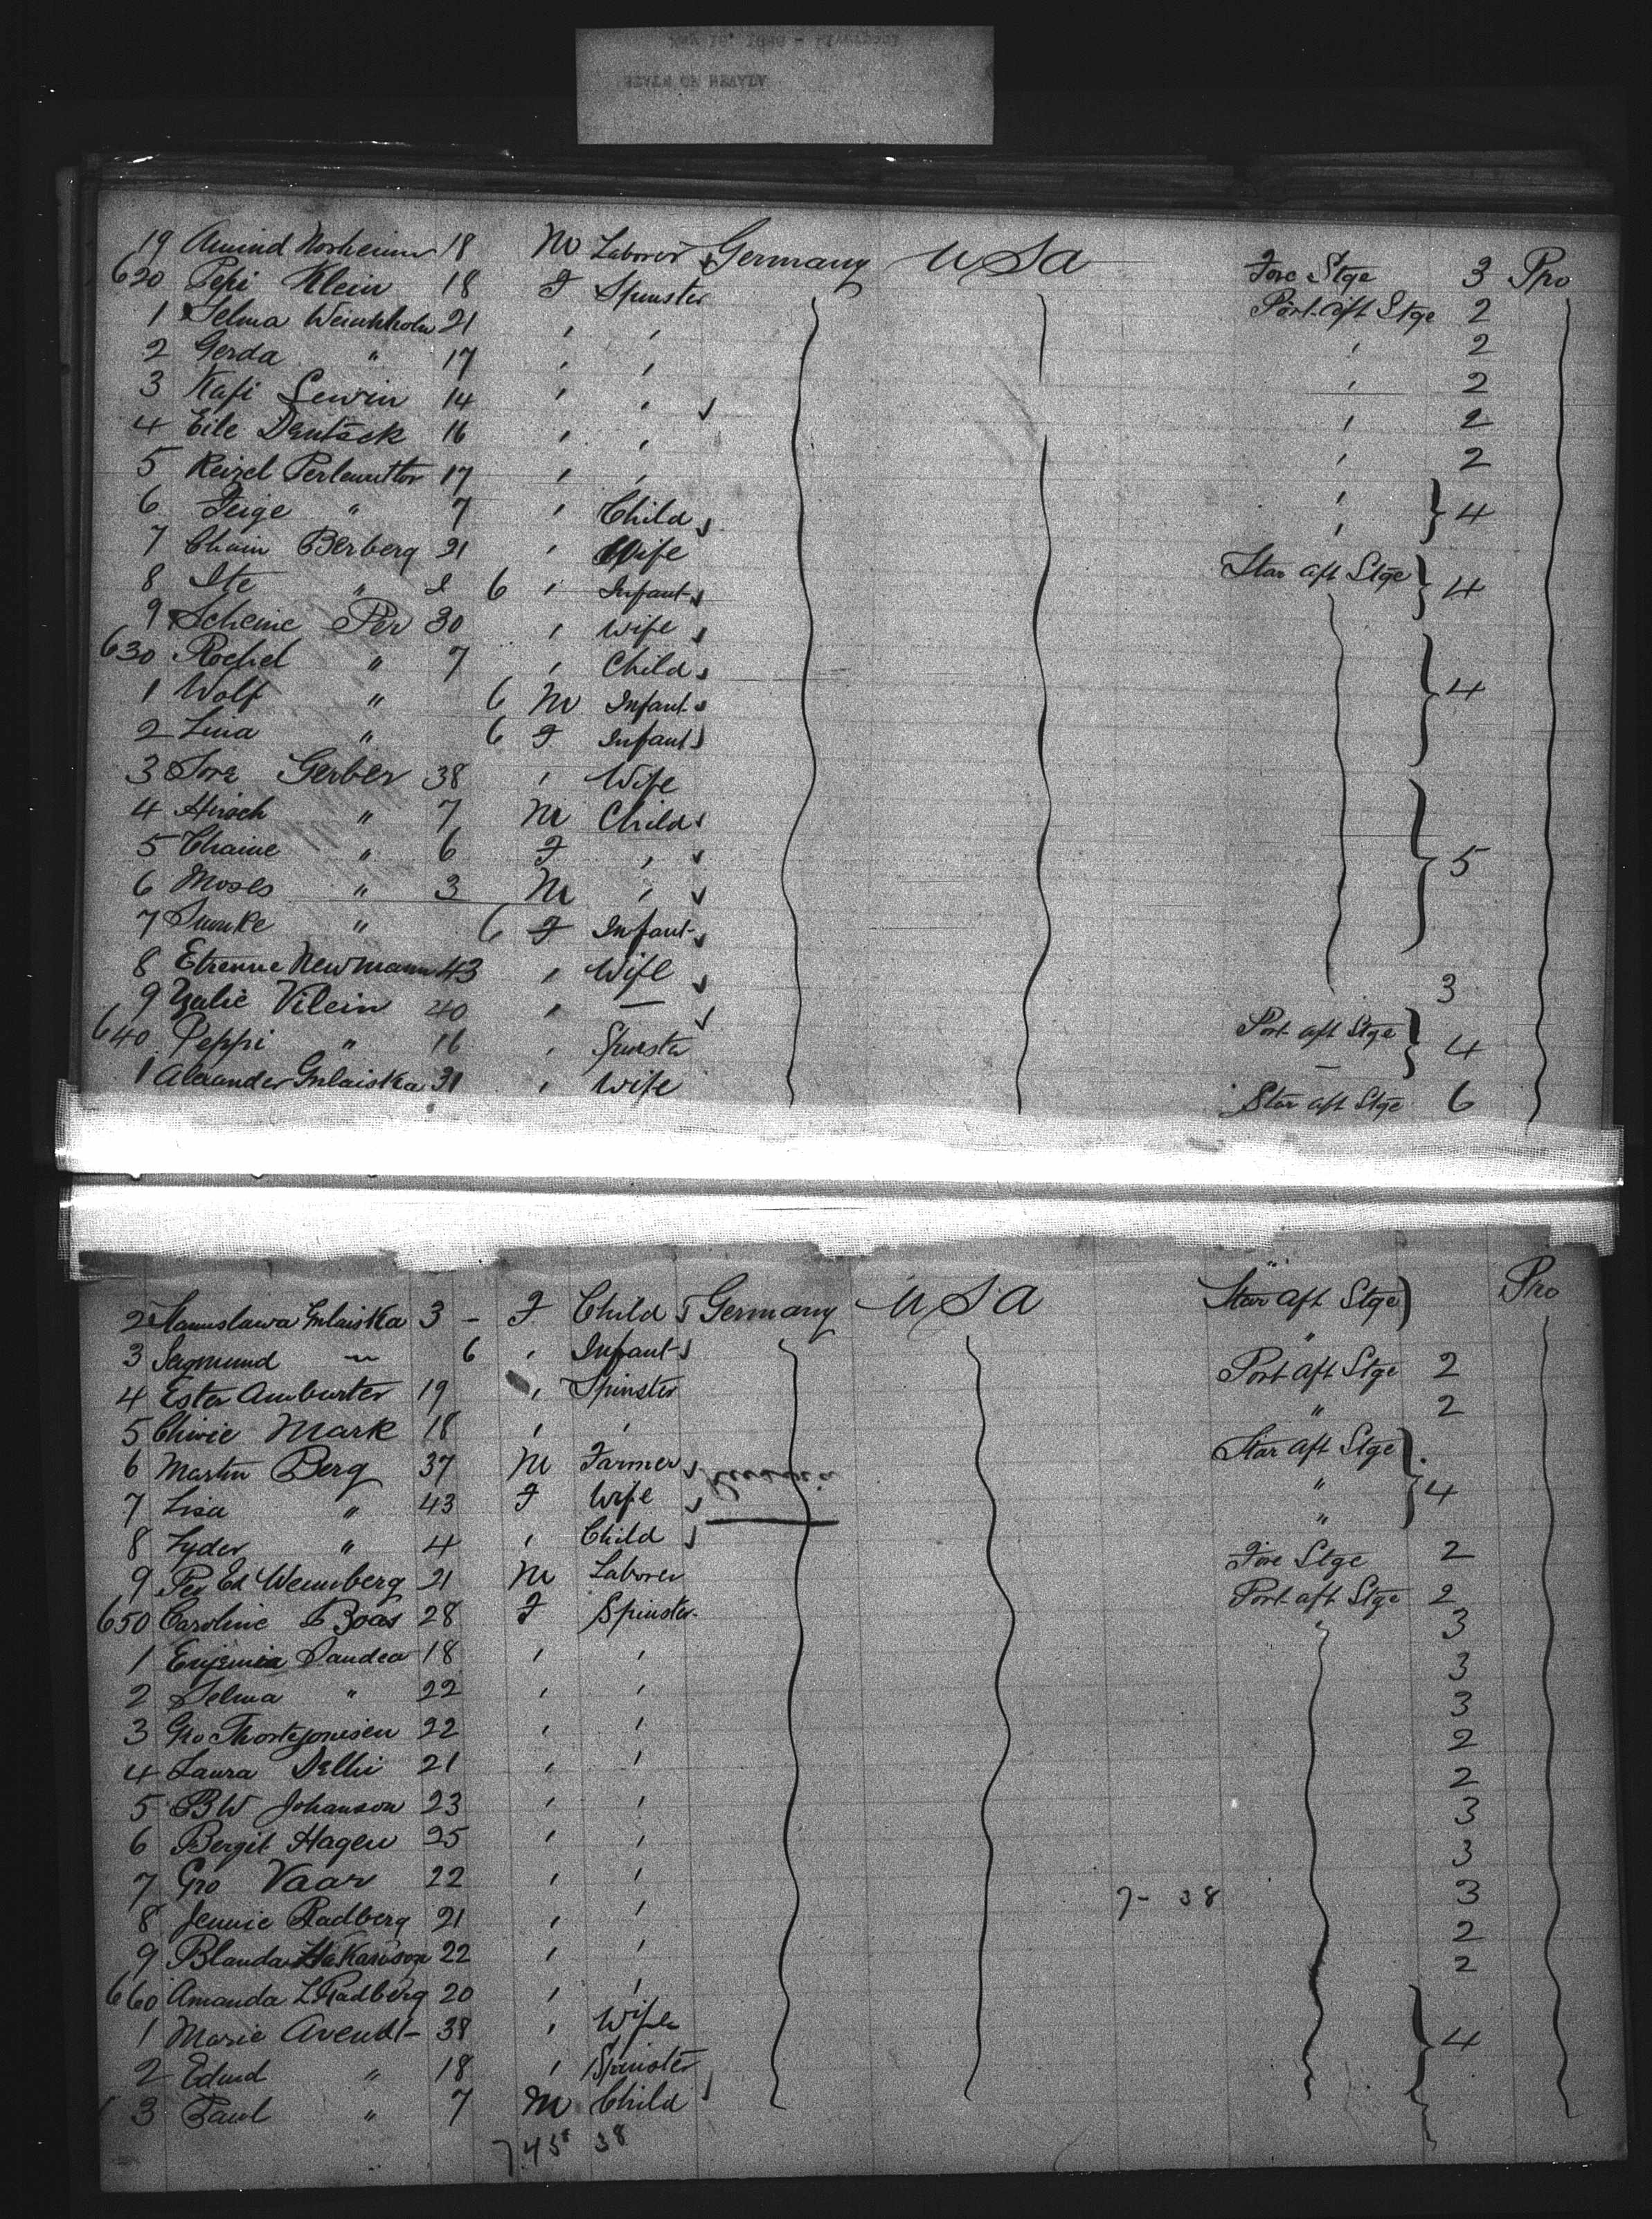 19 Amund Norheimer 18 M Laborer Germany USA Fore Stge 3 Pro
620 Pepi Klein 18 F Spinster Port aft Stge 2
1 Selma 21 , , , 2
2 Gerda " 17 , , , 2
3 Kafi Lewin 14 , , , 2
4 Eile 16 , , , 2
5 Reizel 17 , , ,
6 Feige " 7 , Child , 4
7 Chain Berberg 21 , Wife Star aft Stge
8 Ite " 6 , Infant 4
9 Scheine Per 30 , Wife
630 Rochel " 7 , Child
1 Wolf " 6 M Infant 4
2 Lina " 6 F Infant
3 Sore Gerber 38 , Wife
4 Hirsch " 7 M Child
5 Chaine " 6 F , 5
6 Moses " 3 M ,
7 " 6 F Infant
8 Newmann 43 , Wife 3
9 Vilein 40 , — Port aft Stge
640 Peppi " 16 , Spinster 4
1 Alexander Gulaiska 31 , Wife Star aft Stge 6
2 Stanuslawa Gulaiska 3 - F Child Germany USA Star aft Stge Pro
3 Segmund " 6 , Infant "
4 Ester 19 , Spinster Port aft Stge 2
5 Chivie Mark 18 , , " 2
6 Martin Berg 37 M Farmer Russia Star aft Stge
7 Lisa " 43 F Wife " 4
8 Lyder " 4 , Child "
9 Per Ed Wennberg 21 M Laborer Fore Stge 2
650 Caroline Boas 28 F Spinster Port aft Stge 2
1 Eugenia Sandea 18 , , 3
2 Selma " 22 , , 3
3 Gro 22 , , 3
4 Laura Delhi 21 , , 2
5 BW Johanson 23 , , 2
6 Bergit Hagen 25 , , 3
7 Gro Vaar 22 , , 3
8 Jennie Radberg 21 , , 7- 38 3
9 Blanda Hakanson 22 , , 2
660 Amanda L Radberg 20 , , 2
1 Marie Avendt 38 , Wife
2 Edmd " 18 , Spinster 4
3 Paul " 7 M Child
38